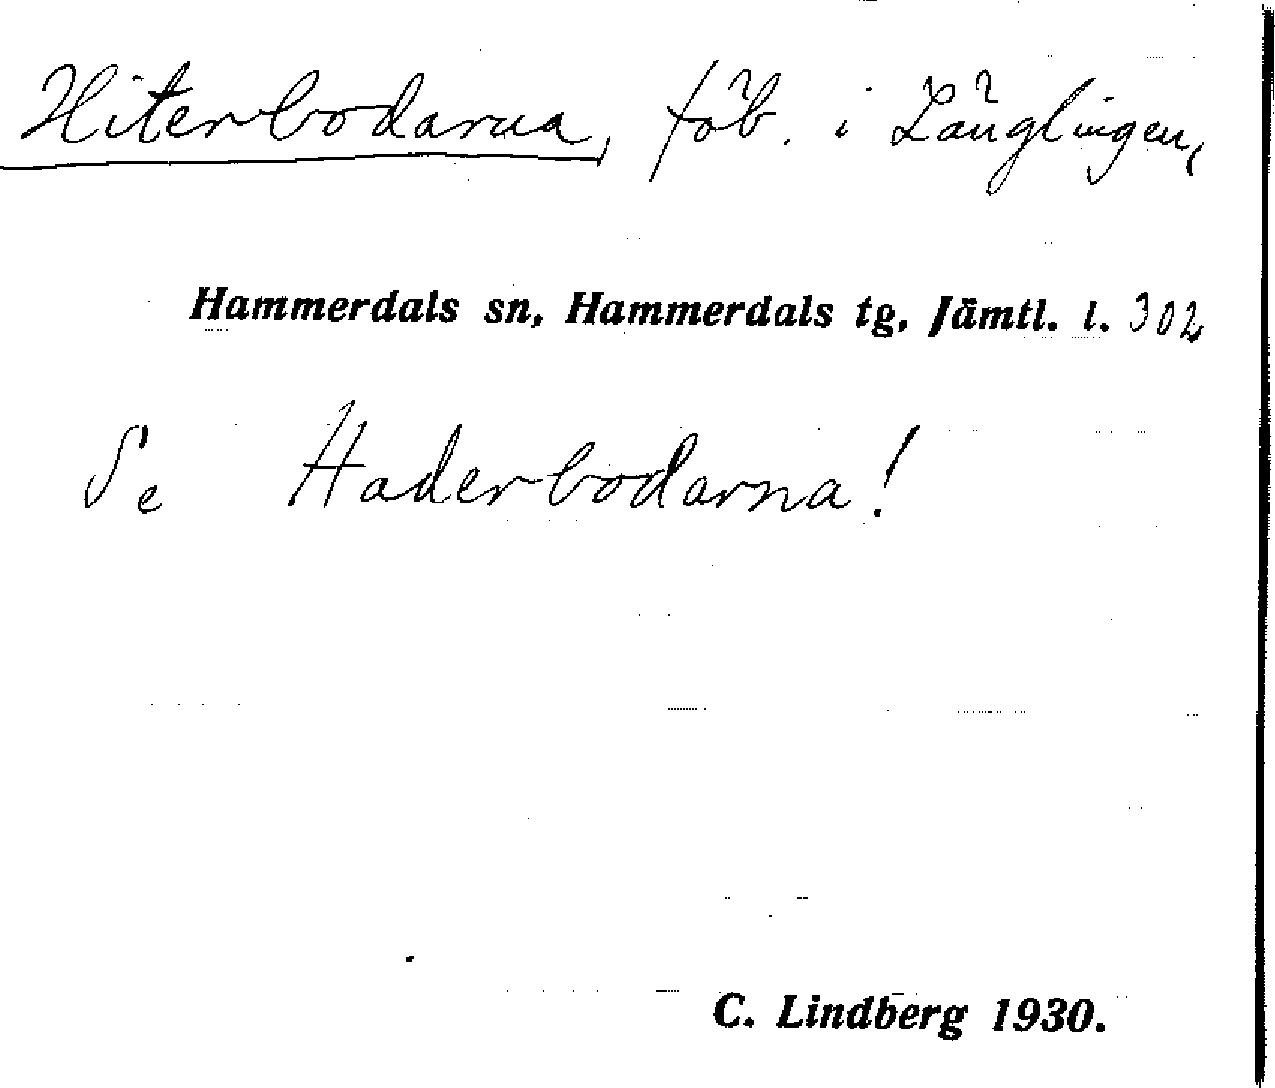 Hiterbodarna, fäb. i Långlingen,
Hammerdals sn, Hammerdals tg, Jämtl. l. 302
Se Haderbodarna!
C. Lindberg 1930.